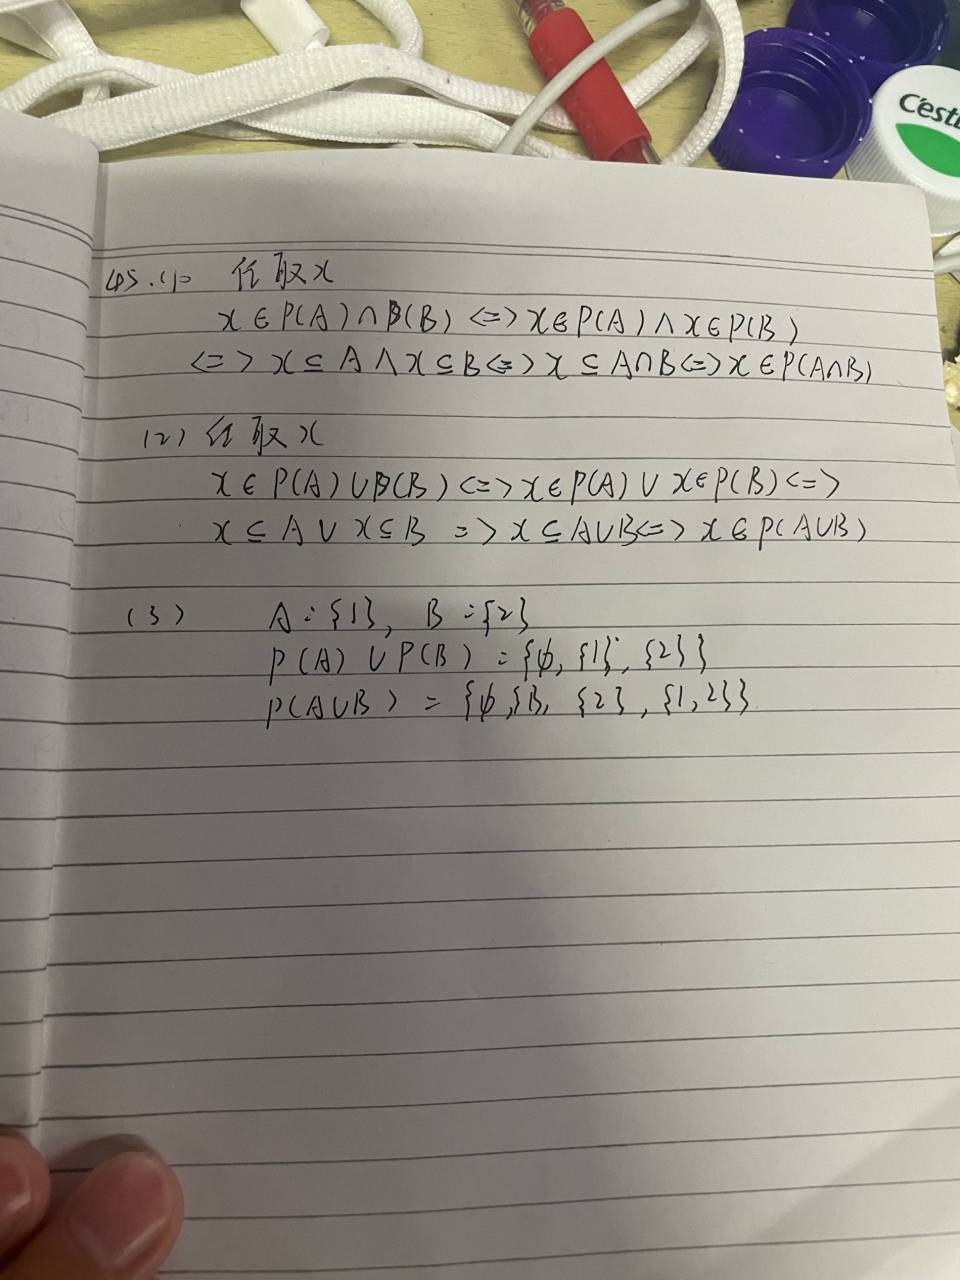 C'est
45.(1) 任取x
x∈P(A)∩P(B)<=>x∈P(A)∧x∈P(B)
<=>x⊆A∧x⊆B<=>x⊆A∩B<=>x∈P(A∩B)
(2) 任取x
x∈P(A)∪P(B)<=>x∈P(A)∪x∈P(B)<=>
x⊆A∪x⊆B=>x⊆A∪B<=>x∈P(A∪B)
(3) A={1}, B={2}
P(A)∪P(B)={φ,{1},{2}}
P(A∪B)={φ,{1},{2},{1,2}}